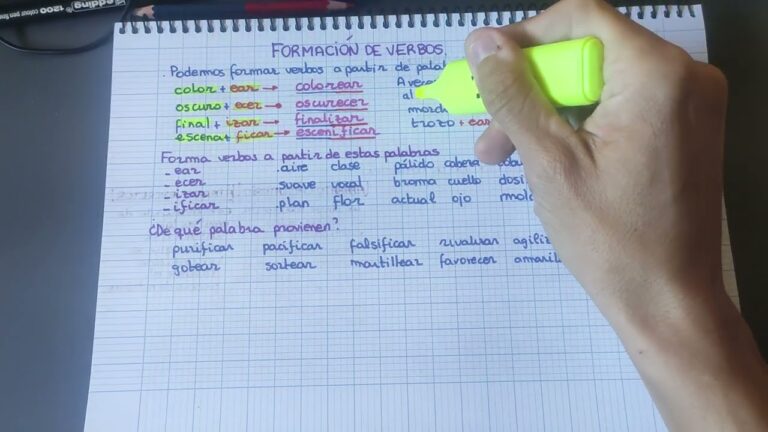 1200 colour pen fine
FORMACIÓN DE VERBOS
. Podemos formar verbos a partir de
color + ear → colorear
oscuro + ecer → oscurecer
final + izar → finalizar
escena + ficar → escenificar
A
al
trozo + ear
Forma verbos a partir de estas palabras
- ear .aire clase pálido cabeza
- ecer .suave vocal broma cuello
- izar .plan flor actual ojo
- ificar
¿De qué palabra provienen?
purificar pacificar falsificar rivalizar
gotear sortear martillear favorecer